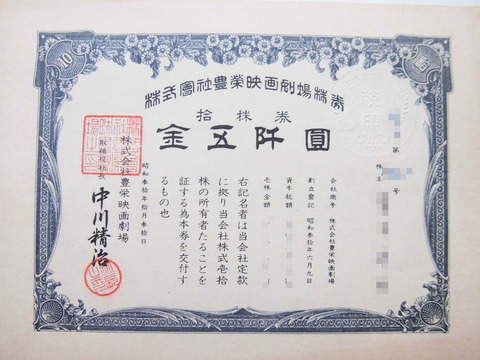 10
拾
株式會社豊榮映画劇場株券
拾株券
金五阡圓
第 号
株主
会社商号 株式会社豊栄映画劇場
創立登記 昭和参拾年六月九日
資本総額
壱株金額
右記名者は当会社定款
に拠り当会社株式壱拾
株の所有者たることを
証する為本券を交付す
るもの也
昭和参拾年拾月参拾日
株式会社豊栄映画劇場
取締役社長 中川精治